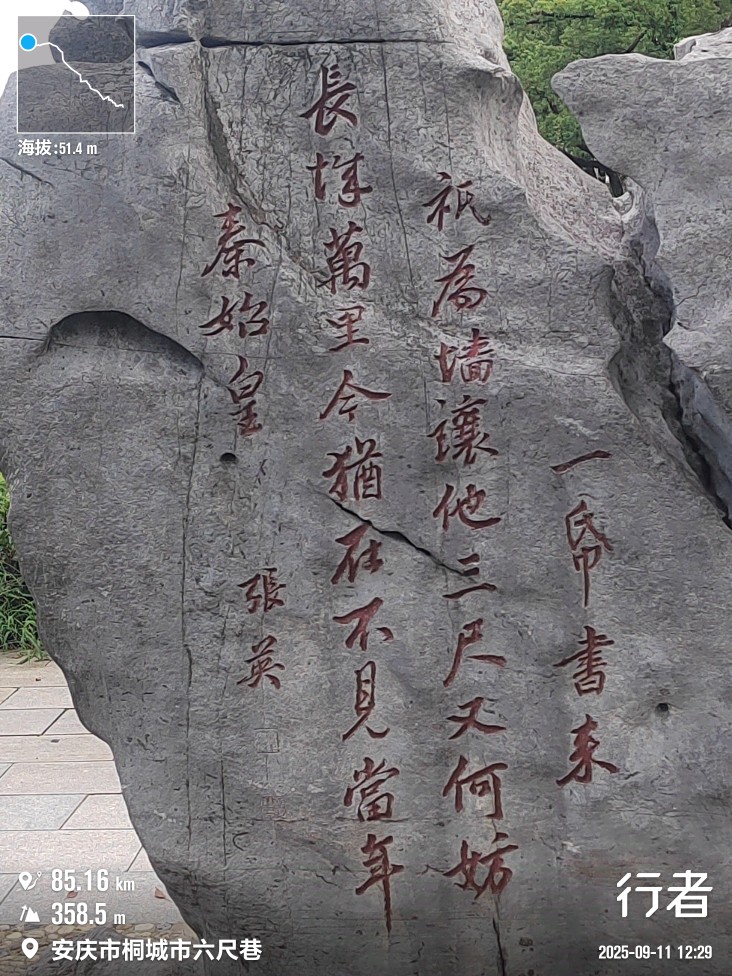 一帋書来
祇為墙讓他三尺又何妨
長城萬里今猶在不見當年
秦始皇
張英
海拔:51.4 m
85.16 km
358.5 m
安庆市桐城市六尺巷
行者
2025-09-11 12:29